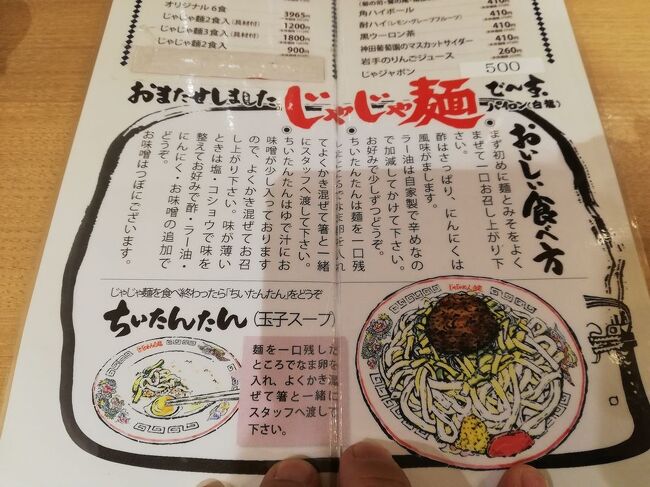 オリジナル6食
3965円
じゃじゃ麺2食入(具材付)
1200円
じゃじゃ麺3食入(具材付)
1800円
じゃじゃ麺2食入
900円
410円
角ハイボール
410円
酎ハイ(レモン・グレープフルーツ)
410円
黒ウーロン茶
410円
神田葡萄園のマスカットサイダー
410円
岩手のりんごジュース
260円
じゃジャポン
500
おまたせしました。
じゃじゃ麺
でんす。
パイロン(白龍)
おいしい食べ方
●まず初めに麺とみそをよく
まぜて一口お召し上がり下
さい。
酢はさっぱり、にんにくは
風味がまします。
ラー油は自家製で辛めなの
で加減してかけて下さい。
お好みで少しずつどうぞ。
●ちいたんたんは麺を一口残
したところでなま卵を入れ
てよくかき混ぜて箸と一緒
にスタッフへ渡して下さい。
●ちいたんたんはゆで汁にお
味噌が少し入っております
ので、よくかき混ぜてお召
し上がり下さい。味が薄い
ときは塩・コショウで味を
整えてお好みで酢・ラー油・
にんにく・お味噌の追加で
どうぞ。
お味噌はつぼにございます。
じゃじゃ麺を食べ終わったら「ちいたんたん」をどうぞ
ちいたんたん(玉子スープ)
麺を一口残した
ところでなま卵を
入れ、よくかき混
ぜて箸と一緒に
スタッフへ渡して
下さい。